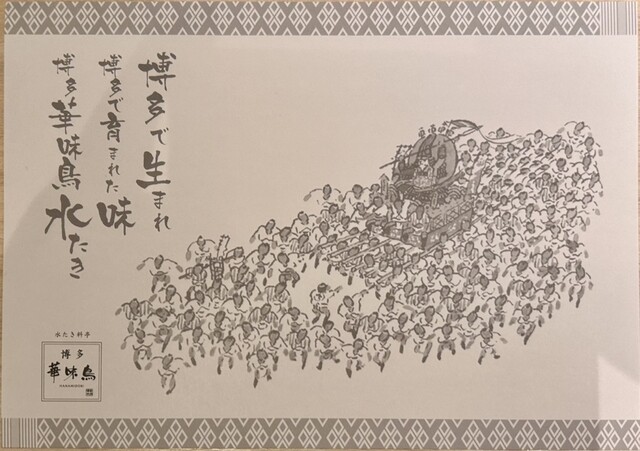 博多で生まれ
博多で育まれた味
博多華味鳥水たき
水たき料亭
博多
華味鳥
HANAMIDORI